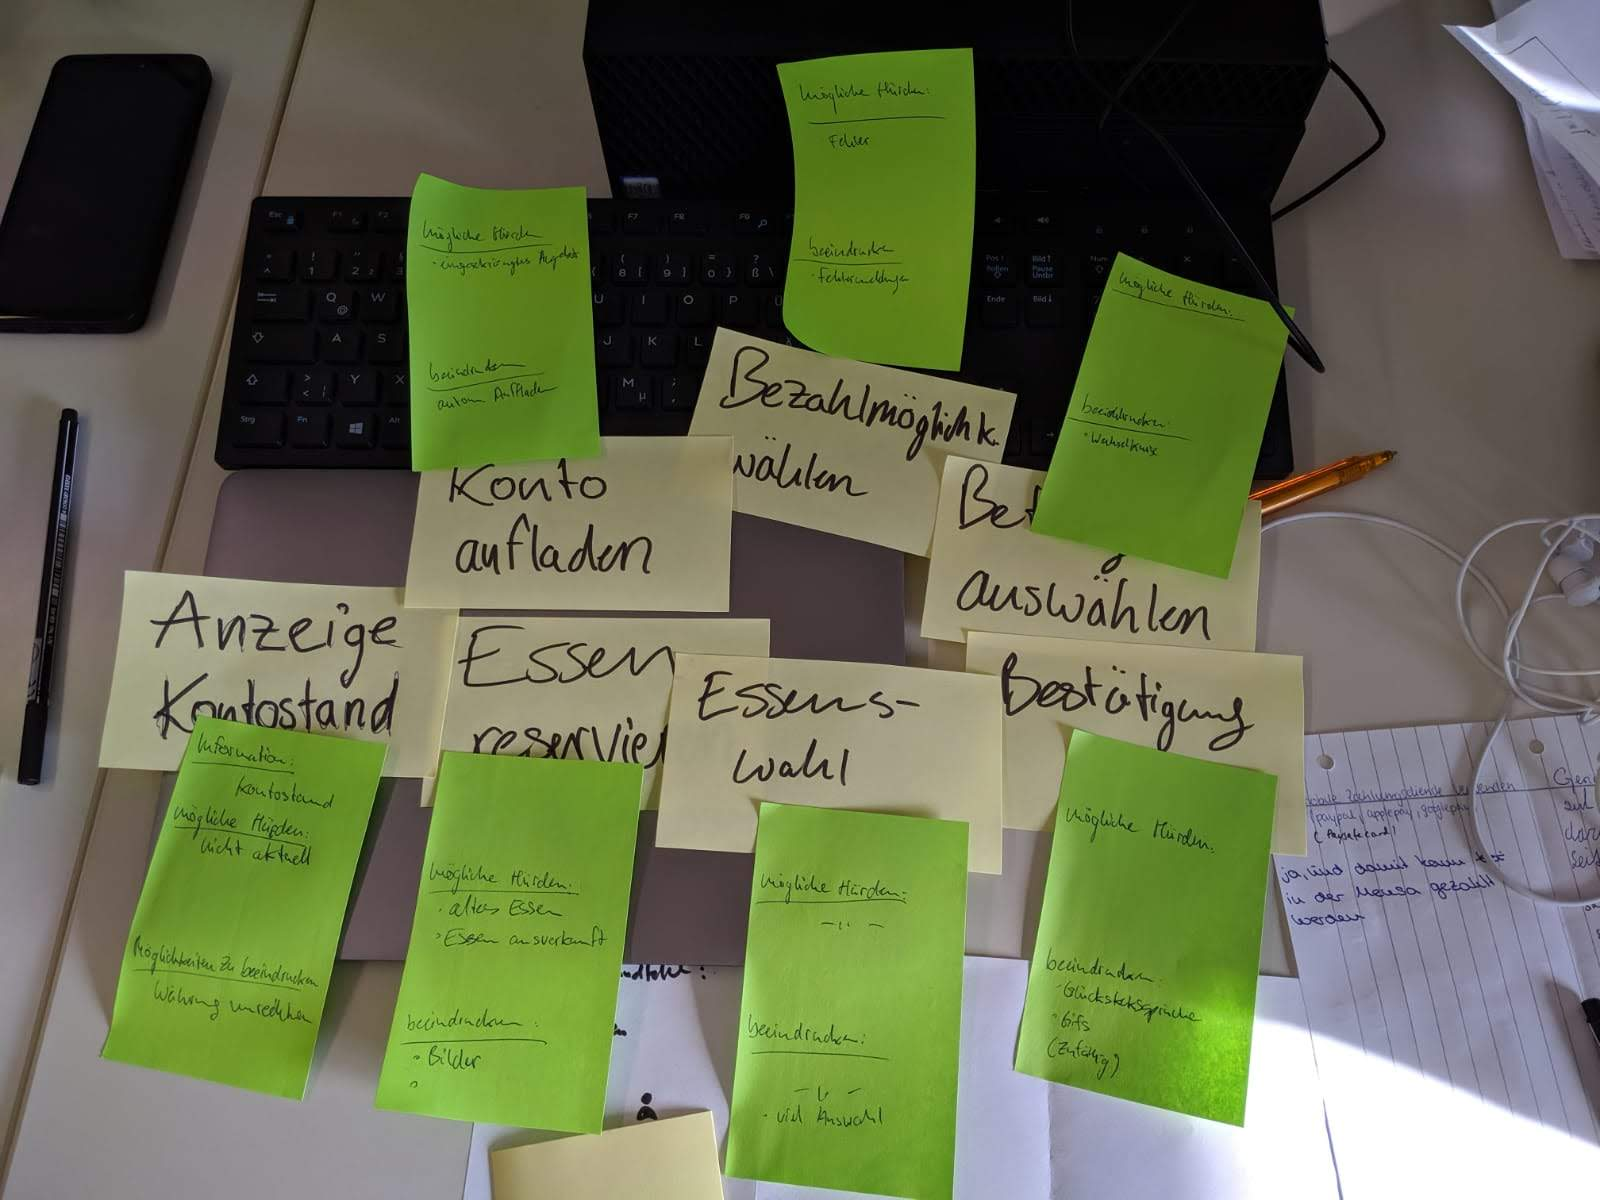 mögliche Hürden:
Fehler
beeindrucken
· Fehlermeldungen
mögliche Hürden
· eingeschränktes Angebot
beeindrucken
autom Aufladen
mögliche Hürden:
beeindrucken:
Bezahlmöglichk.
wählen
Konto
aufladen
Bet
auswählen
Anzeige
Kontostand
Essen
reservie
Essens-
wahl
Bestätigung
Information:
Kontostand
mögliche Hürden:
nicht aktuell
Möglichkeiten zu beeindrucken
Währung umrechnen
mögliche Hürden:
· altes Essen
· Essen ausverkauft
beeindrucken:
· Bilder
mögliche Hürden:
- ,, -
beeindrucken:
- ,, -
· viel Auswahl
mögliche Hürden:
beeindrucken:
· Glückskekssprüche
· Gifs
(Zufällig)
(paypal, applepay, googlepay,
(Paysafecard)
ja, und damit kann
in der Mensa gezahlt
werden
Esc F1 F2 F7 F8 F9
Q W U I O P Ü
A S J K L
Y X M
Strg Fn Alt
Pos 1 Bild↑
Rollen Pause
Untbr
Ende Bild↓
Num